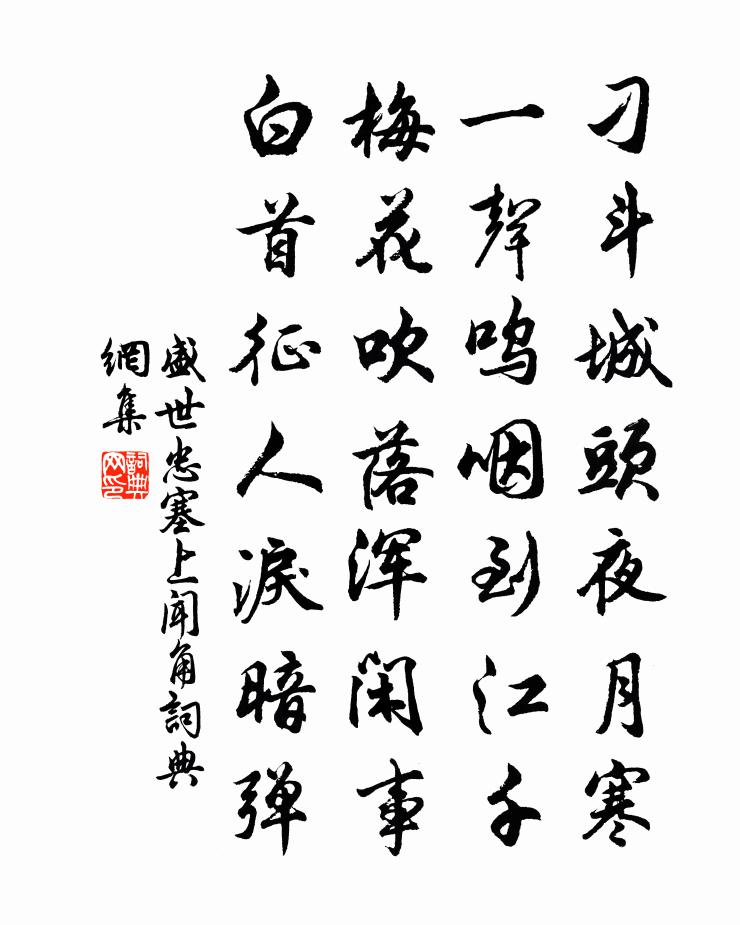 刁斗城頭夜月寒
一聲鳴咽到江千
梅花吹落浑閑事
白首征人淚暗弹
盛世忠塞上聞角詞典
網集
詞典网印